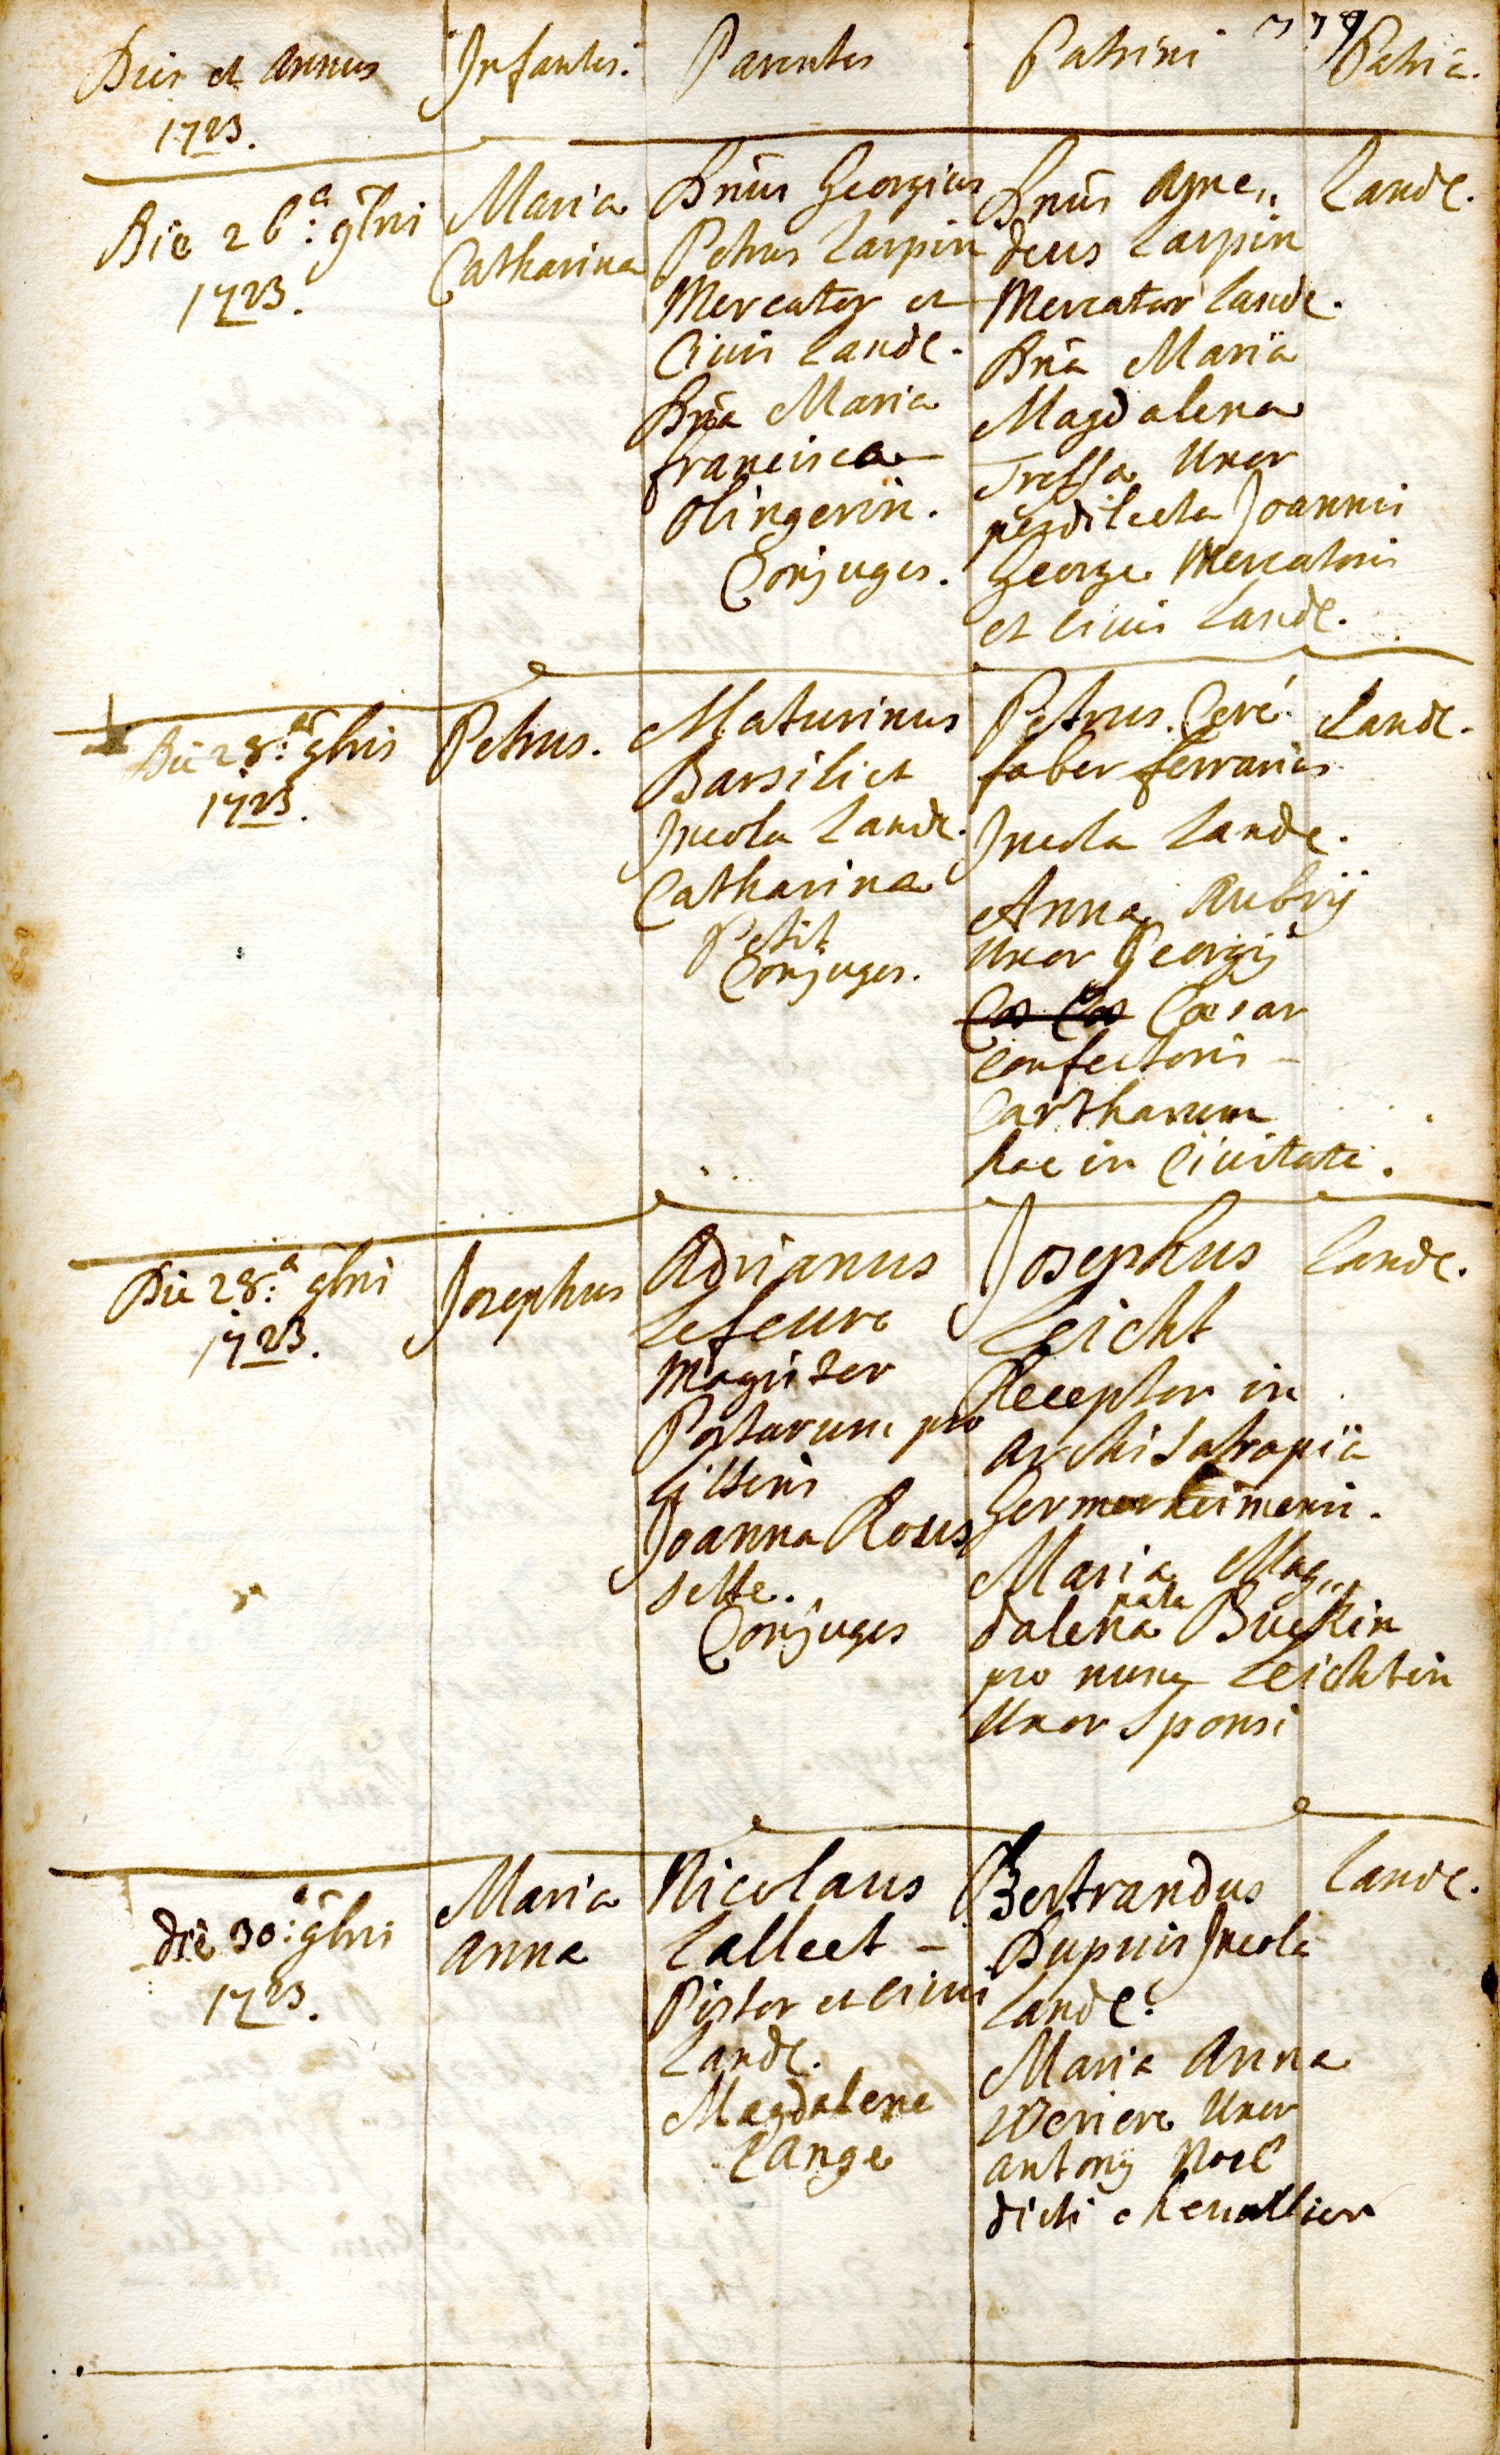 Dies et Annus
1723.
Infantes.
Parentes
Patrini
779
Patria.
Die 26:ª 9bris
1723.
Maria
Catharina
Dnus Georgius
Petrus Larpin
Mercator et
Civis Land.
Dna Maria
francisca
Olingerin.
Conjuges.
Dnus Ame„
deus Larpin
Mercator Land.
Dna Maria
Magdalena
Uxor
perdilecta Joannis
George Mercatoris
et civis Land.
Land.
Die 28:ª 9bris
1723.
Petrus.
Maturinus
Barsiliet
Incola Land.
Catharina
Petit
Conjuges.
Petrus Ceré
faber ferrarius
Incola Land.
Anna Aubrij
Uxor Georgij
Caesar
confectoris
Cartharum
hac in Civitate.
Land.
Die 28:ª 9bris
1723.
Josephus
Adrianus
Lefeure
Magister
Postarum pro
Litteris
Joanna Rous
sette.
Conjuges
Josephus
Leicht
Receptor in
Archisatrapia
Germersheimensi.
Maria Mag„
dalena nata Buckin
pro nunc Leichtin
Uxor Sponsi
Land.
Die 30:ª 9bris
1723.
Maria
Anna
Nicolaus
Calleet
Pistor et civis
Land.
Magdalena
Lange
Bertrandus
Dupuis Incola
Land.
Maria Anna
Weriere Uxor
Antonij Noel
dicti chevallier
Land.